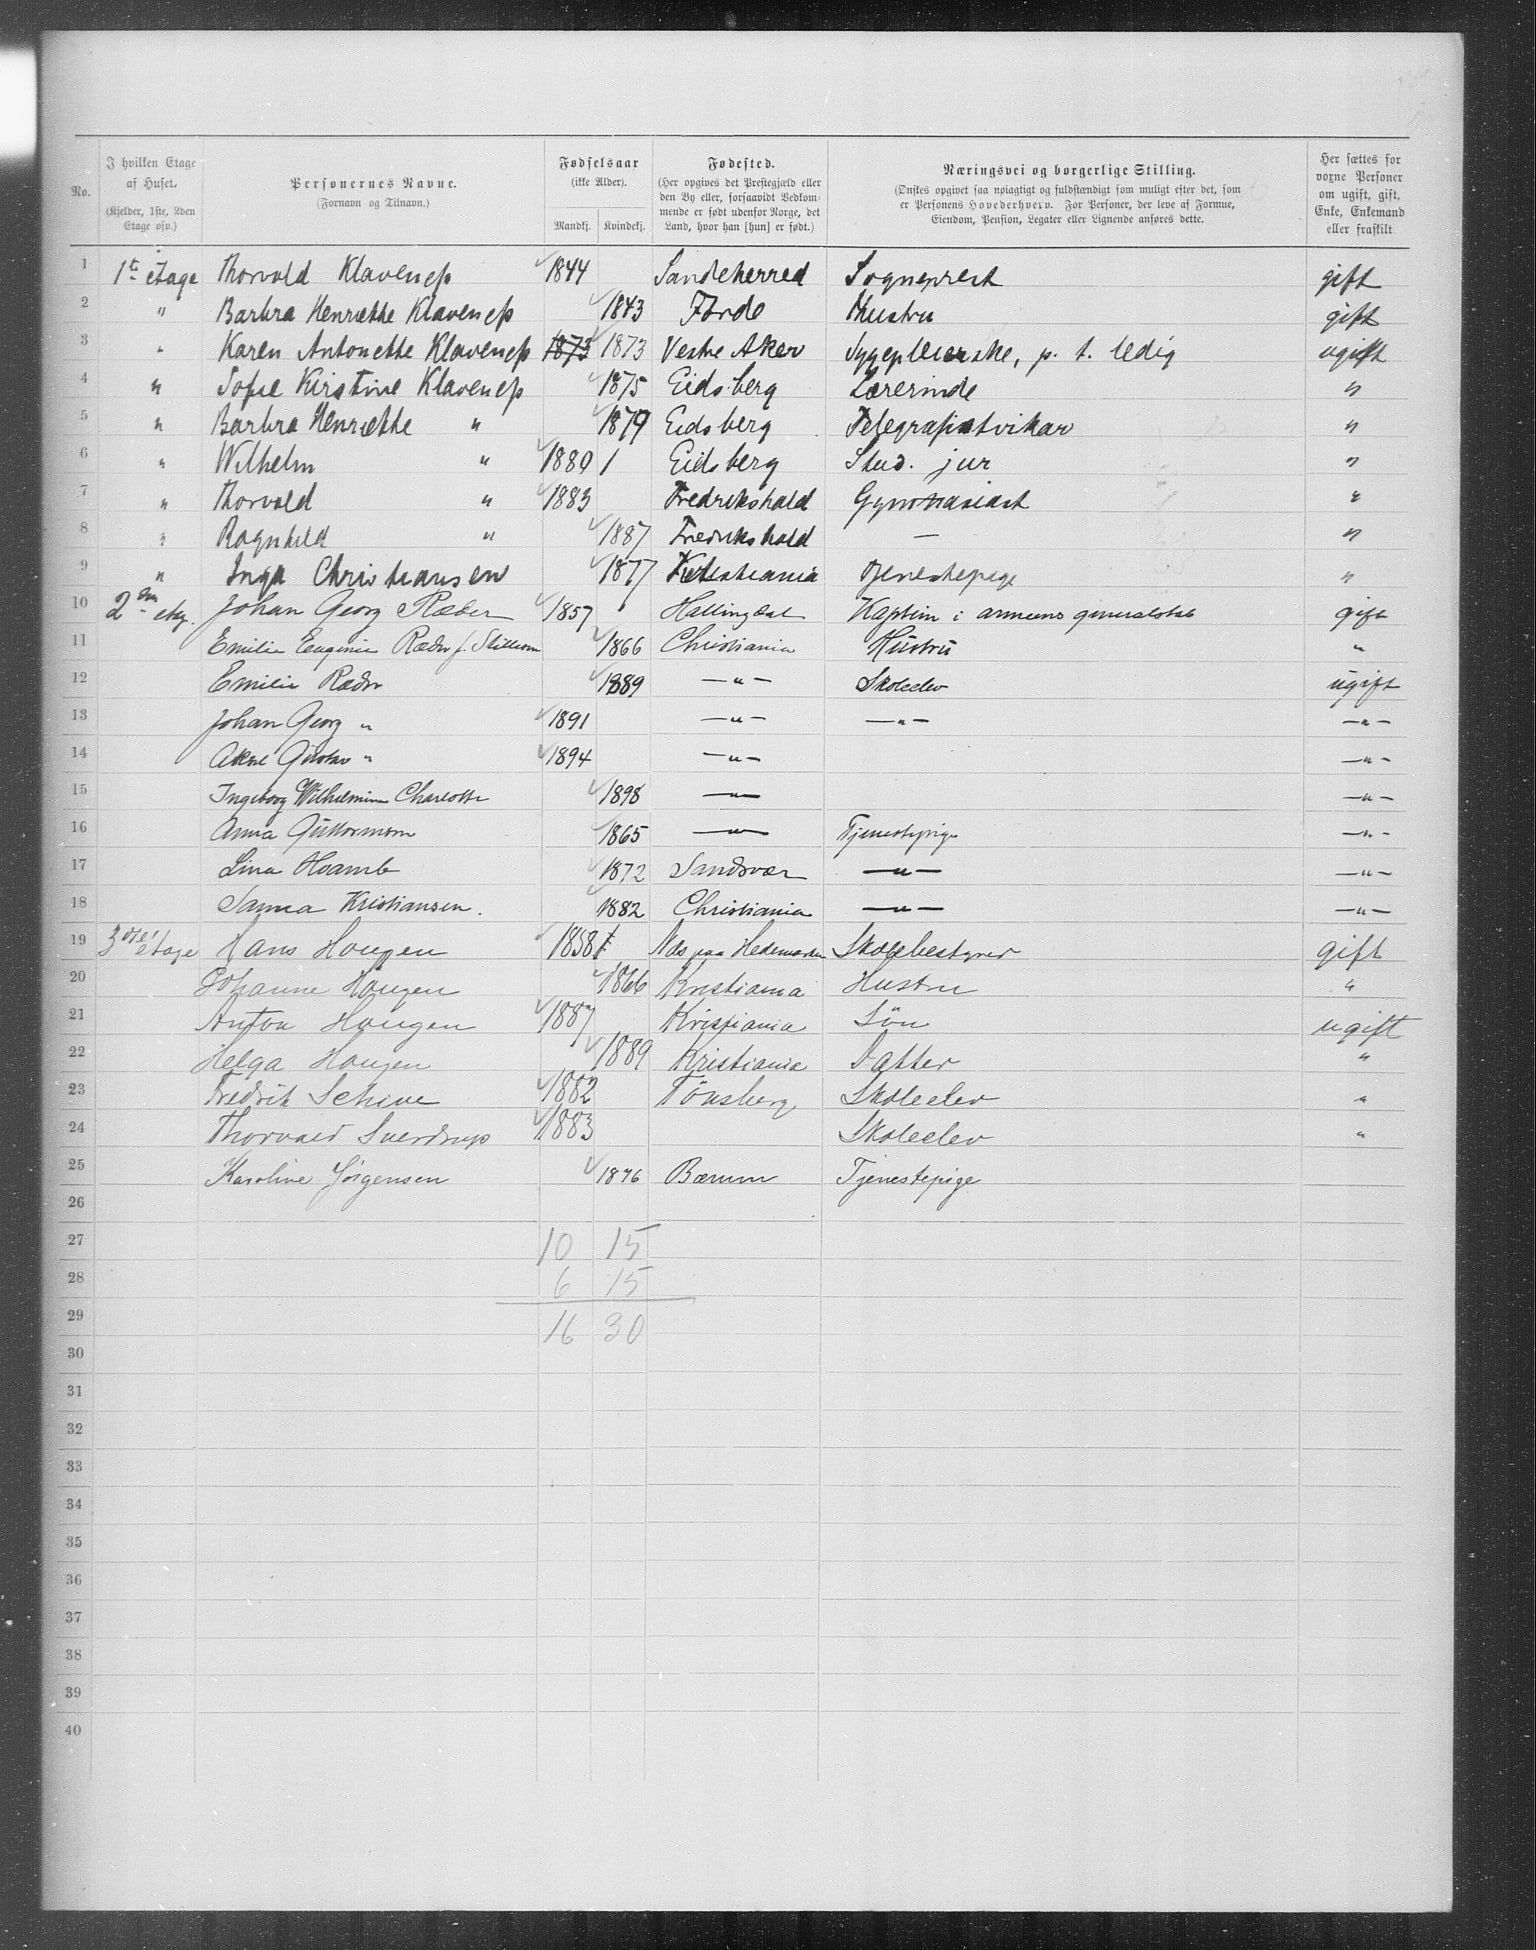 No. | I hvilken Etage af Huset. (Kjelder, 1ste, 2den Etage osv.) | Personernes Navne. (Fornavn og Tilnavn.) | Fødselsaar (ikke Alder). Mandkj. | Kvindekj. | Fødested. (Her opgives det Prestegjæld eller den By eller, forsaavidt Vedkommende er født udenfor Norge, det Land, hvor han [hun] er født.) | Næringsvei og borgerlige Stilling. (Ønskes opgivet saa nøiagtigt og fuldstændigt som muligt efter det, som er Personens Hovederhverv. For Personer, der leve af Formue, Eiendom, Pension, Legater eller Lignende anføres dette. | Her sættes for voxne Personer om ugift, gift, Enke, Enkemand eller fraskilt
1 1te etage Thorvald Klaveness 1844 Sandeherred Sogneprest gift
2 " Barbra Henriette Klaveness 1843 Førde Hustru gift
3 " Karen Antonette Klaveness 1873 1873 Vestre Aker Sygepleierske, p. t. ledig ugift
4 " Sofie Kirstine Klaveness 1875 Eidsberg Lærerinde "
5 " Barbra Henriette " 1879 Eidsberg Telegrafistvikar "
6 " Wilhelm " 1880 1 Eidsberg Stud. jur "
7 " Thorvald " 1883 Fredrikshald Gymnasiast "
8 " Ragnhild " 1887 Fredrikshald — "
9 " Inga Christiansen 1877 Kristiania tjenestepige "
10 2den etg. Johan Georg Ræder 1857 Hallingdal Kaptein i armeens generalstab gift
11 Emilie Eugenie Ræder f. 1866 Christiania Hustru "
12 Emilie Ræder 1889 —"— Skoleelev ugift
13 Johan Georg " 1891 —"— —"— —"—
14 Gustav " 1894 —"— —"—
15 Ingeborg Wilhelmine Charlotte 1898 —"— —"—
16 Anna Guttormsen 1865 —"— Tjenestepige —"—
17 Lina Hvamb 1872 Sandsvær —"— —"—
18 Sanna Kristiansen. 1882 Christiania —"— —"—
19 3die etage Hans Hougen 1858 Næs paa Hedemarken Skolebestyrer gift
20 Johanne Hougen 1866 Kristiania Hustru "
21 Anton Hougen 1887 Kristiania Søn ugift
22 Helga Hougen 1889 Kristiania Datter "
23 Fredrik Schive 1882 Tönsberg Skoleelev "
24 Thorvald Sverdrup 1883 Skoleelev "
25 Karoline Jørgensen 1876 Bærum Tjenestepige
26
27 10 15
28 6 15
29 16 30
30
31
32
33
34
35
36
37
38
39
40